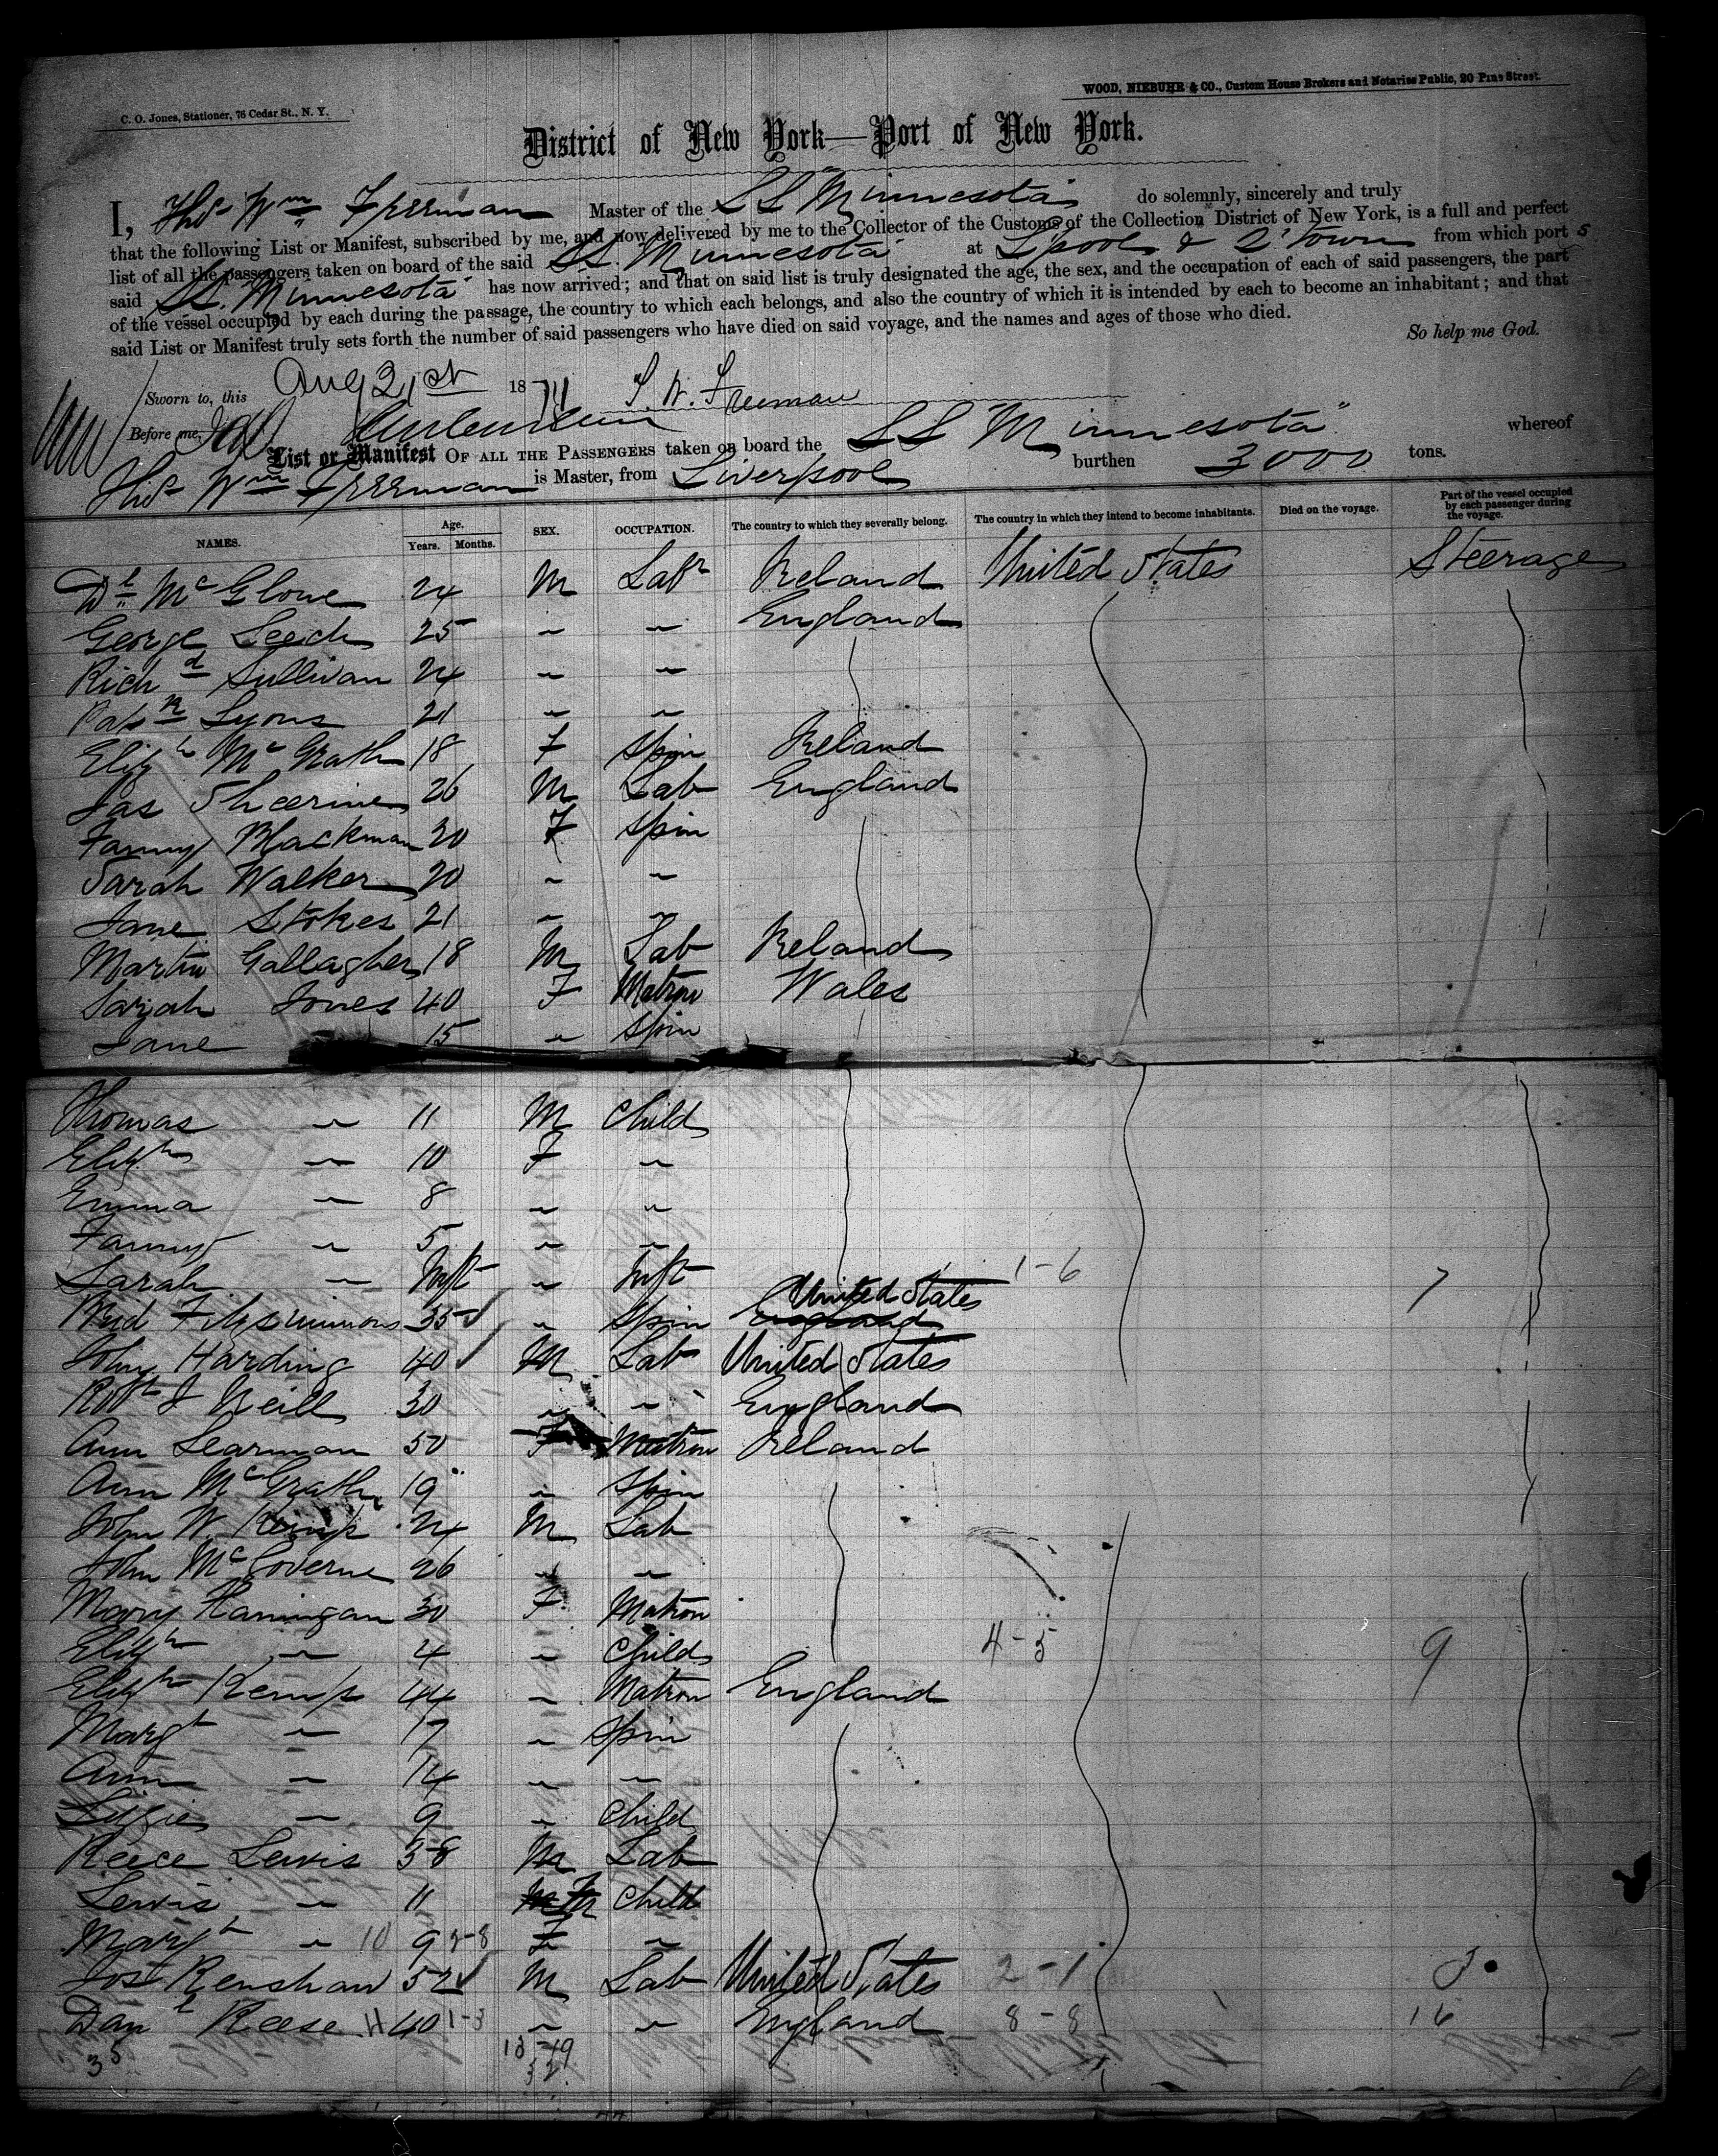 C. O. Jones, Stationer, 76 Cedar St., N. Y.
WOOD, NIEBUHR & CO., Custom House Brokers and Notaries Public, 20 Pine Street.
District of New York—Port of New York.
I, Thos Wm Freeman Master of the SS "Minnesota" do solemnly, sincerely and truly
that the following List or Manifest, subscribed by me, and now delivered by me to the Collector of the Customs of the Collection District of New York, is a full and perfect
list of all the passengers taken on board of the said SS. Minnesota at L'pool & Q'town from which port s
said SS. "Minnesota" has now arrived; and that on said list is truly designated the age, the sex, and the occupation of each of said passengers, the part
of the vessel occupied by each during the passage, the country to which each belongs, and also the country of which it is intended by each to become an inhabitant; and that
said List or Manifest truly sets forth the number of said passengers who have died on said voyage, and the names and ages of those who died.
So help me God.
Sworn to, this Aug 21st 1871 T. W. Freeman
Before me,
List or Manifest OF ALL THE PASSENGERS taken on board the SS "Minnesota" whereof
Thos Wm Freeman is Master, from Liverpool burthen 3000 tons.
NAMES. Age. Years. Months. SEX. OCCUPATION. The country to which they severally belong. The country in which they intend to become inhabitants. Died on the voyage. Part of the vessel occupied by each passenger during the voyage.
Dl McGlone 24 M Labr Ireland United States Steerage
George Leech 25 " " England
Richd Sullivan 24 " "
Patk Lyons 21 " "
Elizth McGrath 18 F Spin Ireland
Jas Sheerine 26 M Lab England
Fanny Blackman 30 F Spin
Sarah Walker 20 " "
Jane Stokes 21 " "
Martin Gallagher 18 M Lab Ireland
Sarah Jones 40 F Matron Wales
Jane 15 " Spin
Thomas " 11 M Child
Elizth " 10 F "
Emma " 8 " "
Fanny " 5 " "
Sarah " Inft " Inft 1-6 7
Fitzsimmons 35 " Spin England United States
John Harding 40 M Lab United States
Robt J Neill 30 " " England
Ann Learman 50 F Matron Ireland
Ann McGrath 19 " Spin
John W. Kemp 24 M Lab
John McGovern 26 " "
Mary Hannigan 30 F Matron
Elizth " 4 " Child 4-5 9
Elizth Kemp 44 " Matron England
Margt " 17 " Spin
Ann " 14 " "
Lizzie " 9 " Child
Reece Lewis 38 M Lab
Lewis " 11 M Child
Margt " 10 9 2-8 F "
Jos Renshaw 52 M Lab United States 2-1 3
Danl Reese H 40 1-3 " " England 8-8 16
35 13-19
32